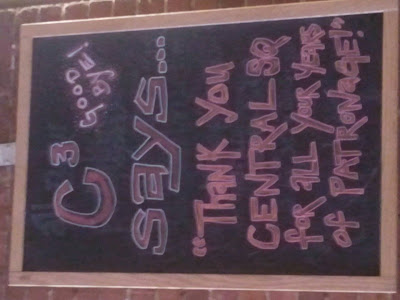 Goodbye!
C3
says...
"Thank you
Central Sq
for all your years
of patronage!"